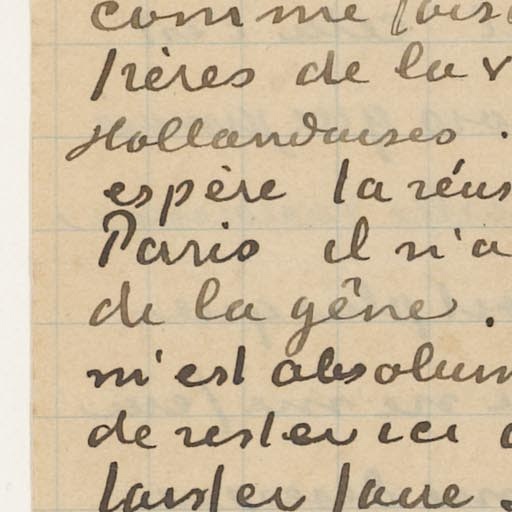 comme
frères de la v
Hollandaises.
espère la réus
Paris il n'a
de la gêne.
m'est absolum
de rester ici
laisser faire